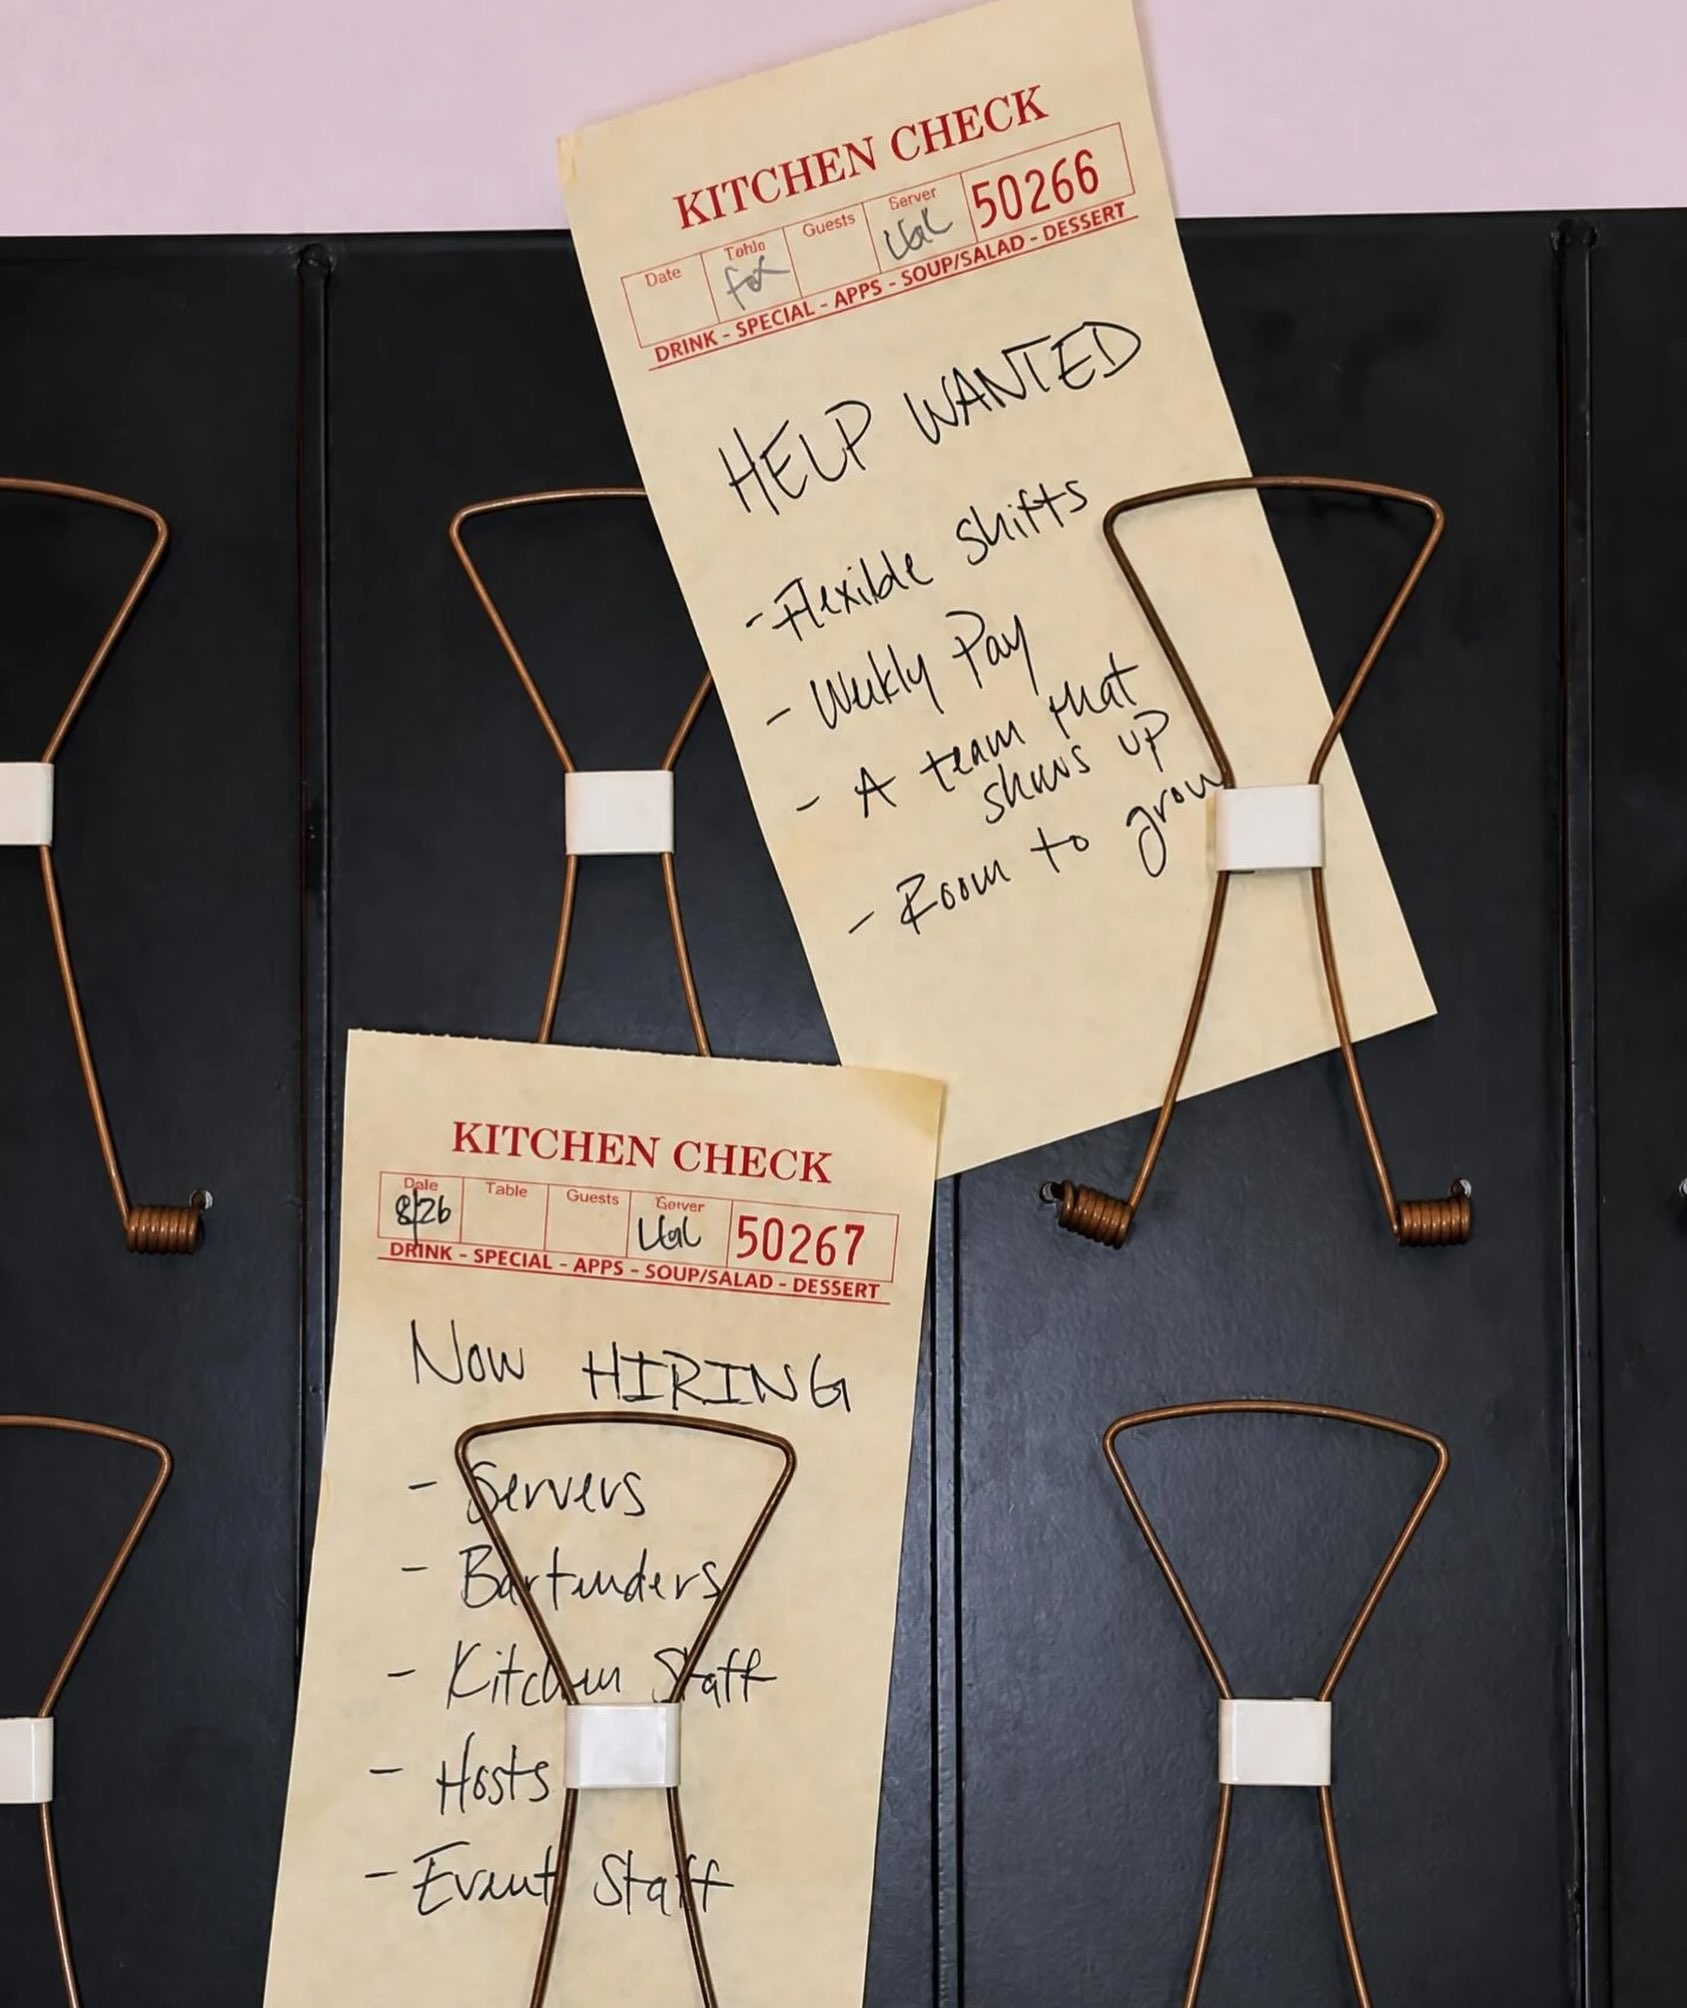 KITCHEN CHECK
Date Table Guests Server 50266
DRINK - SPECIAL - APPS - SOUP/SALAD - DESSERT
HELP WANTED
- Flexible Shifts
- Weekly Pay
- A team that
shows up
- Room to grow
KITCHEN CHECK
Date Table Guests Server 50267
8/26
DRINK - SPECIAL - APPS - SOUP/SALAD - DESSERT
Now HIRING
- Servers
- Bartenders
- Kitchen Staff
- Hosts
- Event Staff